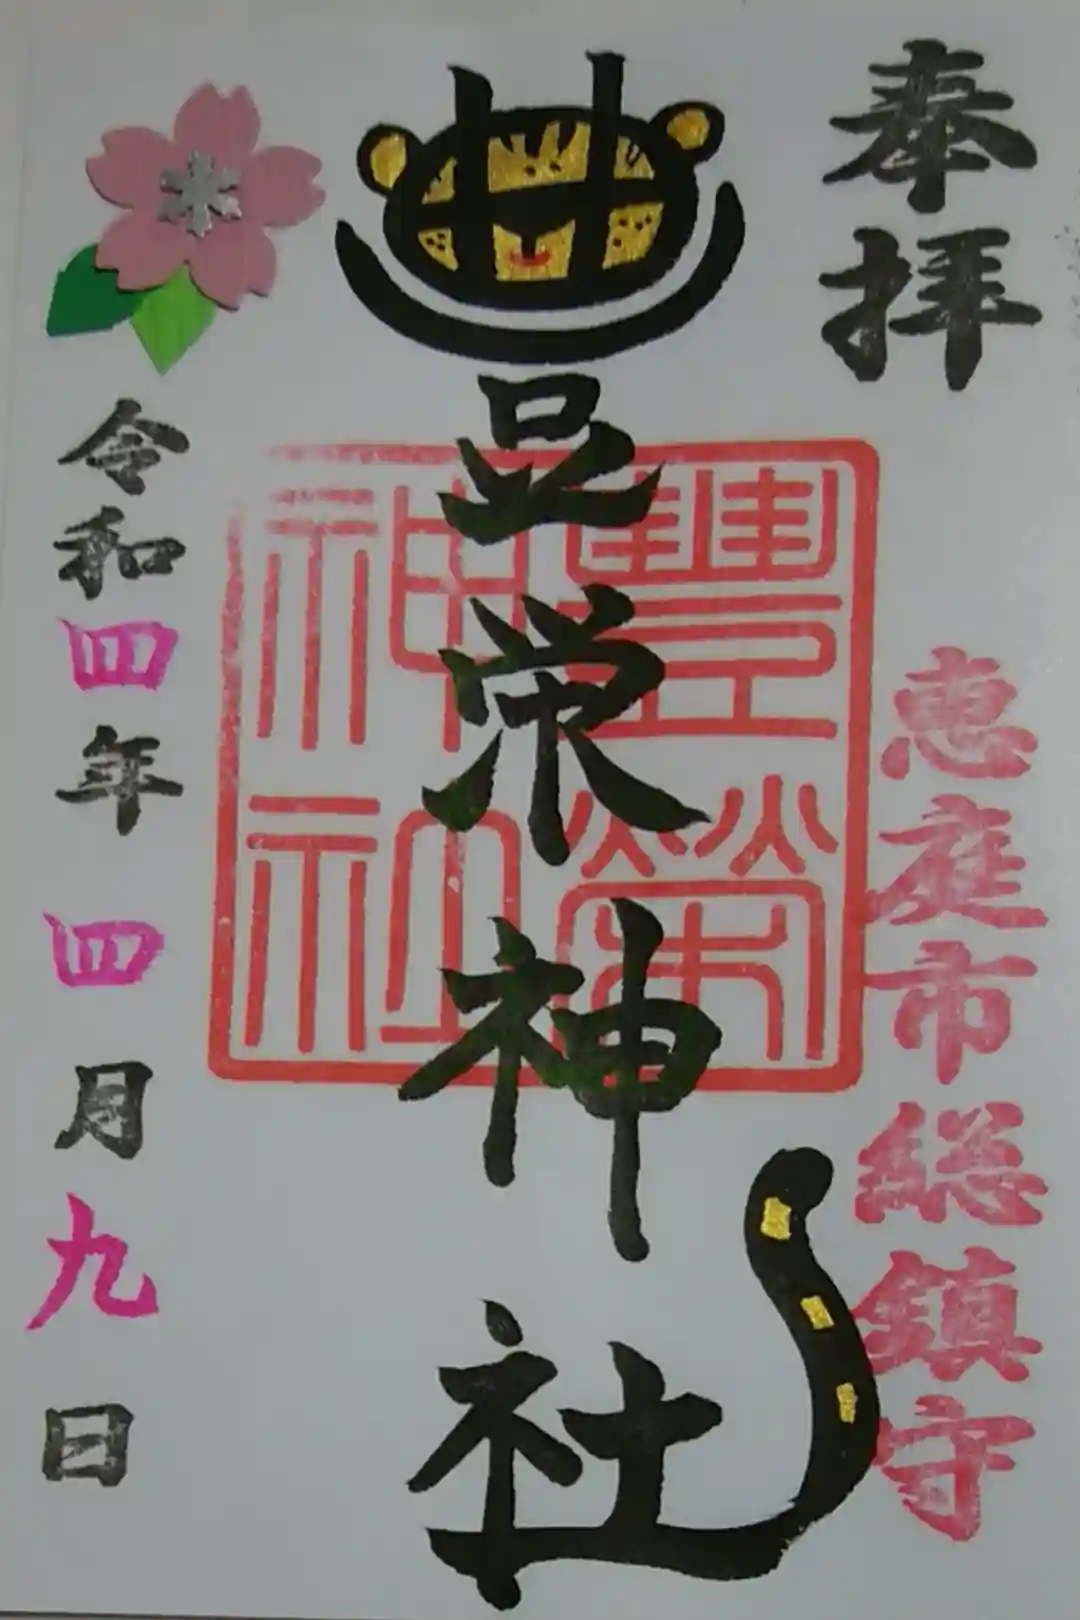 奉拝
恵庭市総鎮守
豊栄神社
豊榮神社
令和四年四月九日